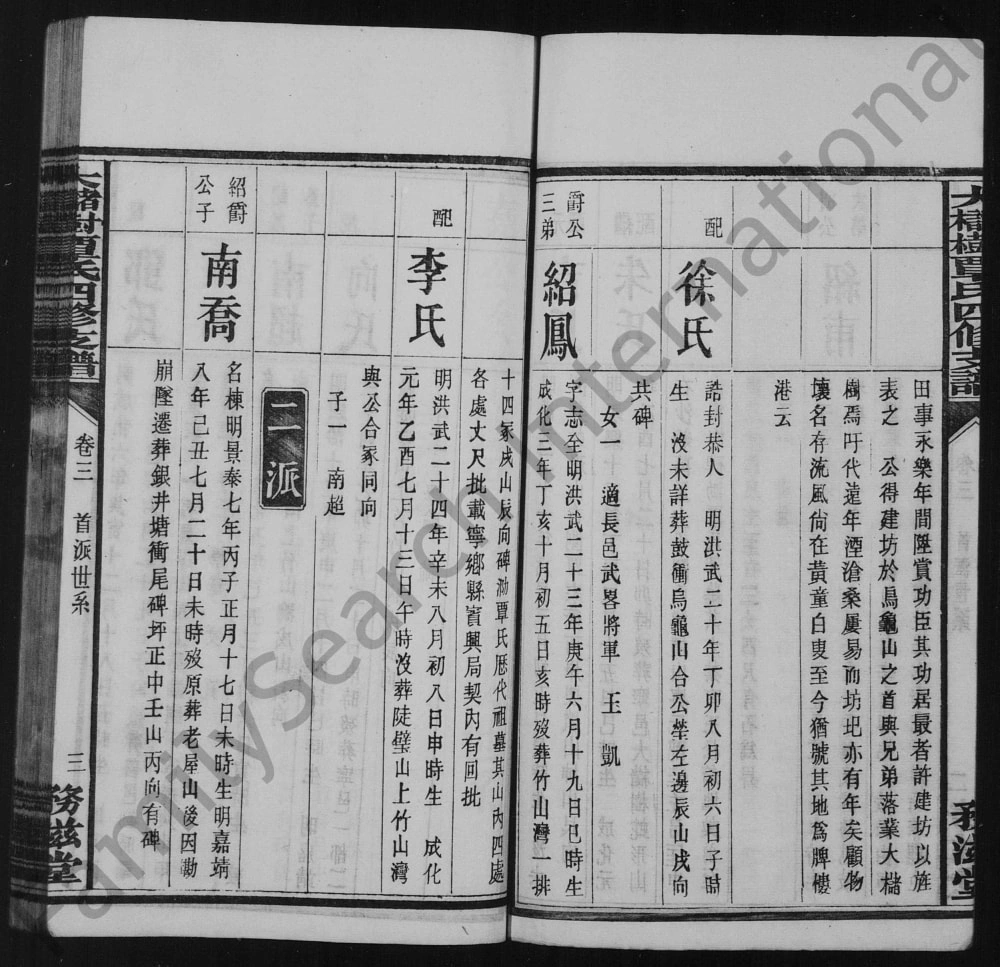 大櫧樹覃氏四修支譜
務滋堂
田事永樂年間陞賞功臣其功居最者許建坊以旌
表之　公得建坊於烏龜山之首與兄弟落業大櫧
樹焉吁代遠年湮滄桑屢易而坊圯亦有年矣顧物
壞名存流風尙在黃童白叟至今猶號其地爲牌樓
港云
配
徐氏
誥封恭人　明洪武二十年丁卯八月初六日子時
生　沒未詳葬鼓衝烏龜山合公塋左邊辰山戌向
共碑
女一　適長邑武畧將軍　王　凱
爵公
三弟
紹鳳
字志至明洪武二十三年庚午六月十九日巳時生
成化三年丁亥十月初五日亥時歿葬竹山灣一排
十四冢戌山辰向碑泐覃氏歷代祖墓其山內四處
各處丈尺批載寧鄉縣賓興局契內有回批
配
李氏
明洪武二十四年辛未八月初八日申時生　成化
元年乙酉七月十三日午時沒葬陡壁山上竹山灣
與公合冢同向
子一　南超
二派
紹爵
公子
南喬
名棟明景泰七年丙子正月十七日未時生明嘉靖
八年己丑七月二十日未時歿原葬老屋山後因勘
崩墜遷葬銀井塘衝尾碑坪正中壬山丙向有碑
大櫧樹覃氏四修支譜
卷三　首派世系
三
務滋堂
FamilySearch International